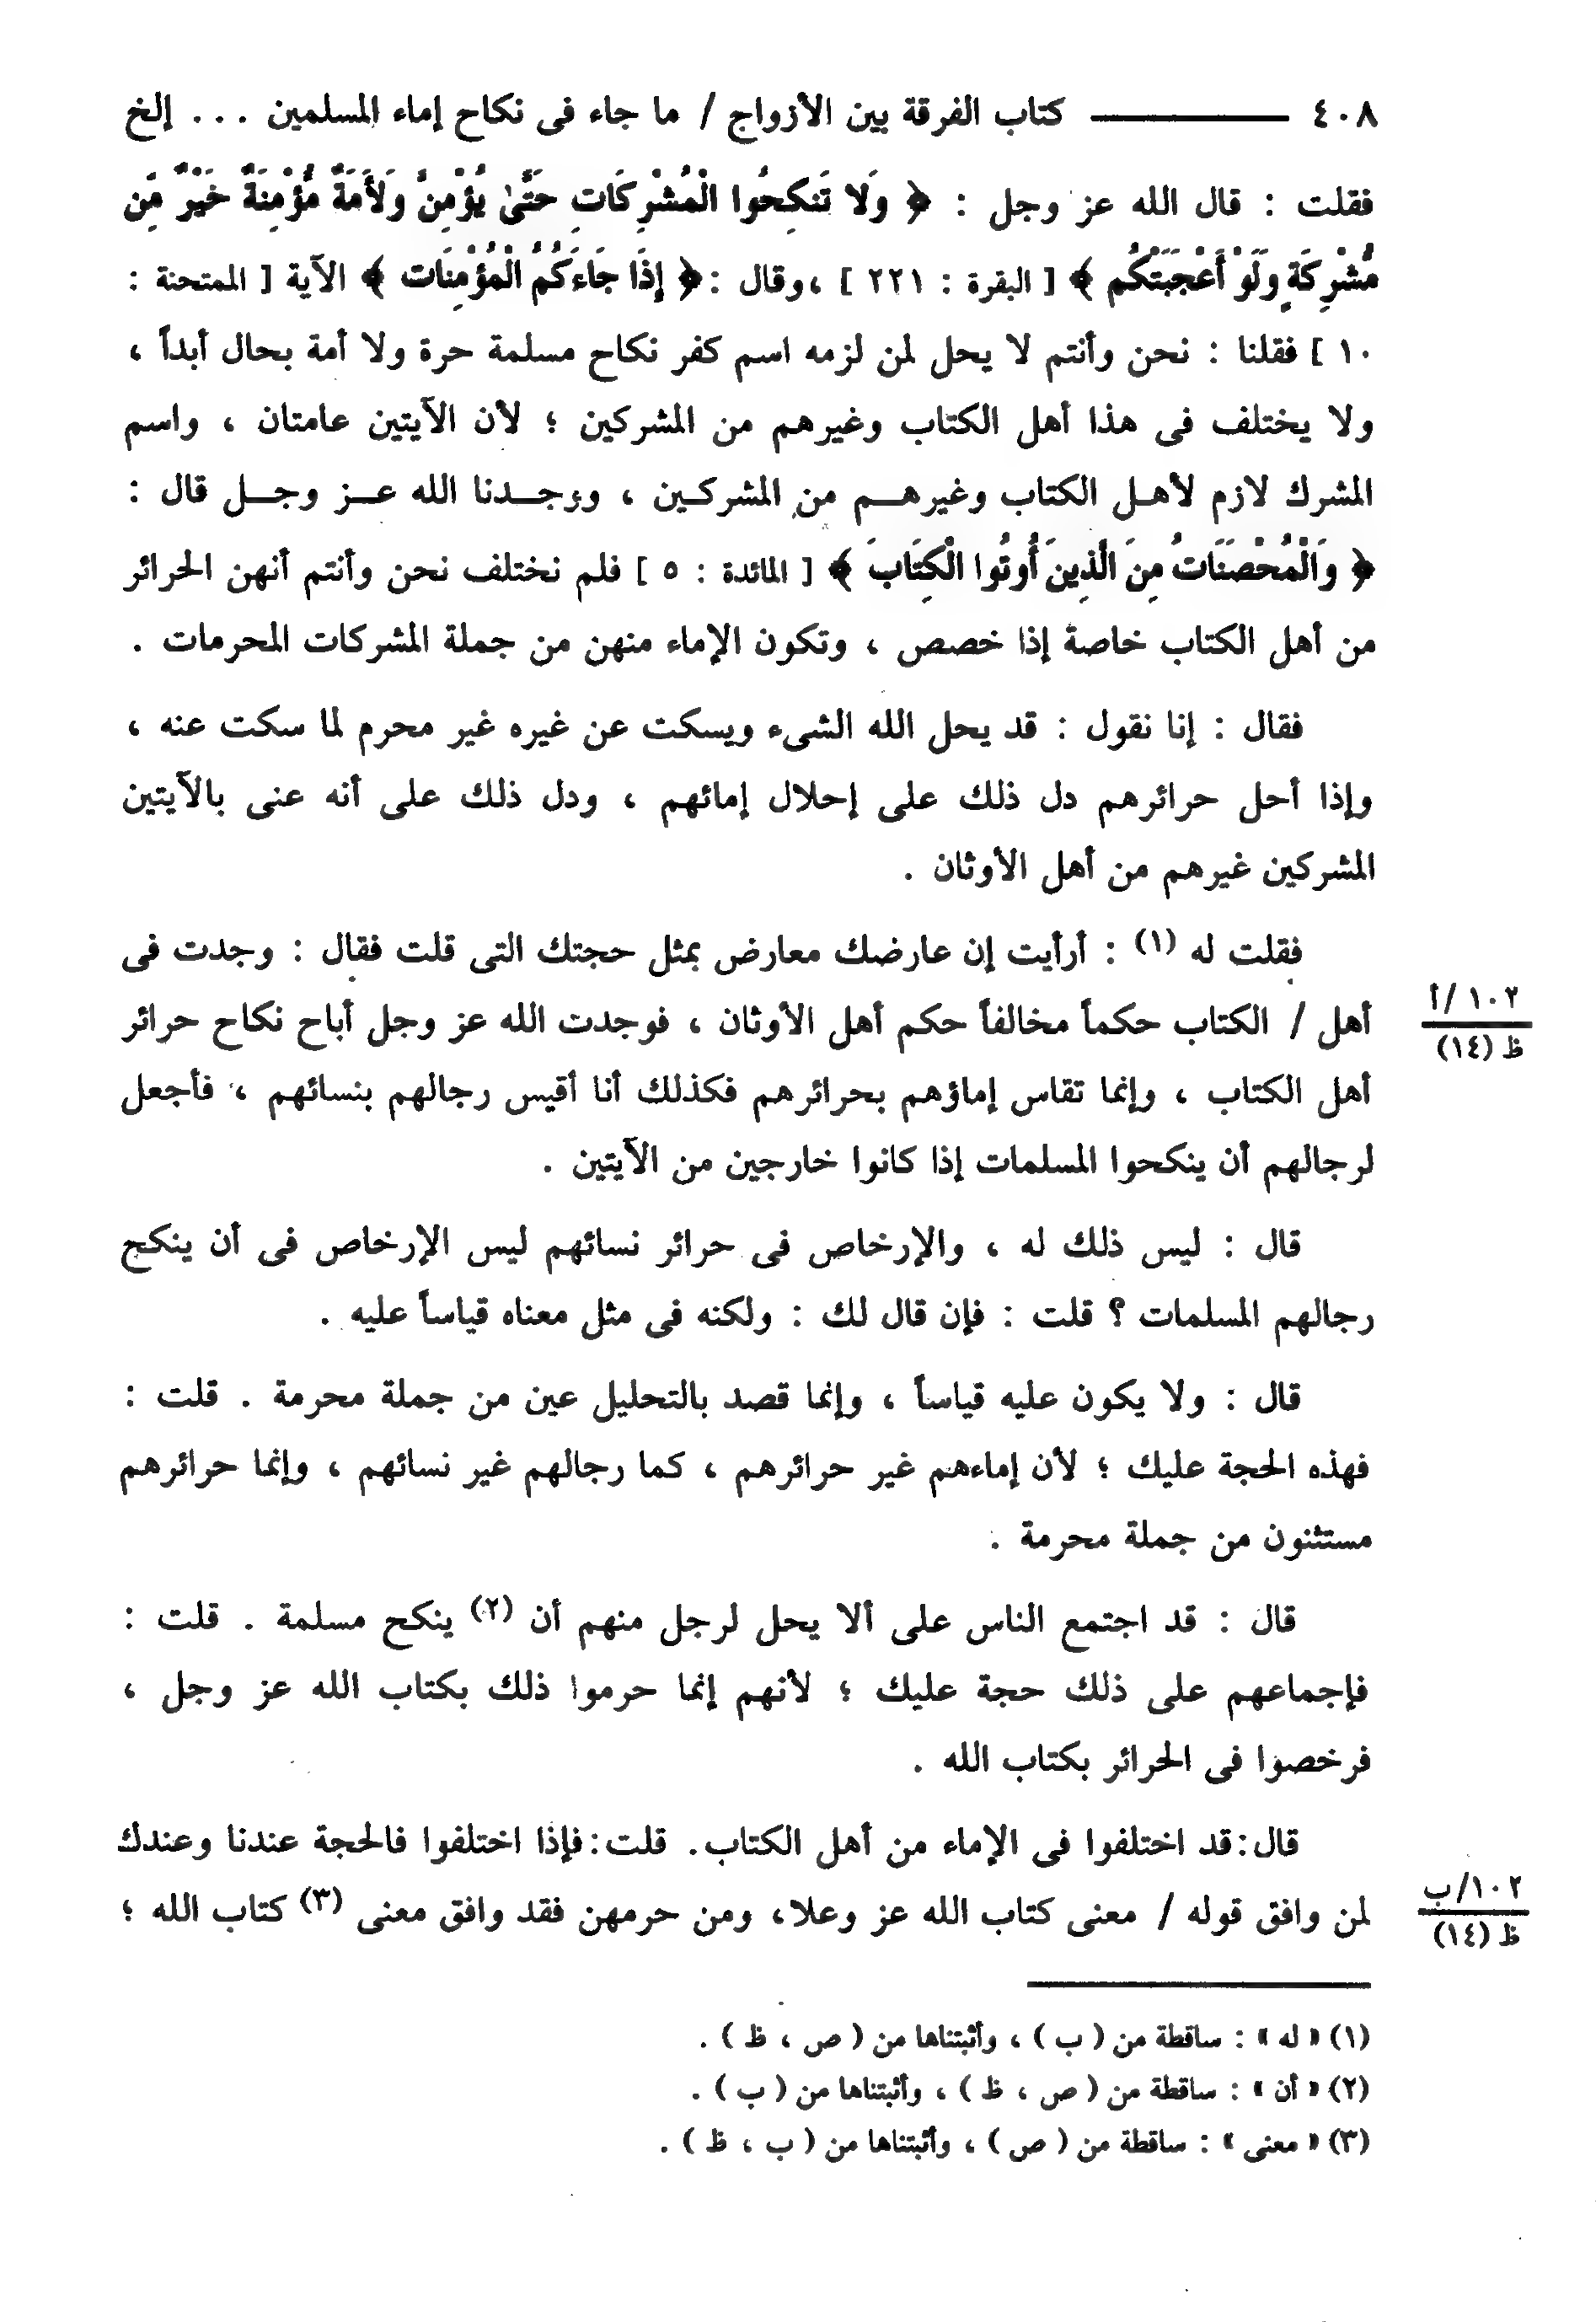 ٤٠٨ ــــــــــ كتاب الفرقة بين الأزواج / ما جاء فى نكاح إماء المسلمين ... إلخ
فقلت : قال الله عز وجل : ﴿ وَلا تَنكِحُوا الْمُشْرِكَاتِ حَتَّىٰ يُؤْمِنَّ وَلَأَمَةٌ مُّؤْمِنَةٌ خَيْرٌ مِّن
مُّشْرِكَةٍ وَلَوْ أَعْجَبَتْكُم ﴾ [ البقرة : ٢٢١ ] ،وقال :﴿ إِذَا جَاءَكُمُ الْمُؤْمِنَات ﴾ الآية [ الممتحنة :
١٠ ] فقلنا : نحن وأنتم لا يحل لمن لزمه اسم كفر نكاح مسلمة حرة ولا أمة بحال أبداً ،
ولا يختلف فى هذا أهل الكتاب وغيرهم من المشركين ؛ لأن الآيتين عامتان ، واسم
المشرك لازم لأهـل الكتاب وغيرهـم من المشركـين ، ووجـدنا الله عـز وجـل قال :
﴿ وَالْمُحْصَنَاتُ مِنَ الَّذِينَ أُوتُوا الْكِتَابَ ﴾ [ المائدة : ٥ ] فلم نختلف نحن وأنتم أنهن الحرائر
من أهل الكتاب خاصة إذا خصص ، وتكون الإماء منهن من جملة المشركات المحرمات .
فقال : إنا نقول : قد يحل الله الشىء ويسكت عن غيره غير محرم لما سكت عنه ،
وإذا أحل حرائرهم دل ذلك على إحلال إمائهم ، ودل ذلك على أنه عنى بالآيتين
المشركين غيرهم من أهل الأوثان .
فقلت له (١) : أرأيت إن عارضك معارض بمثل حجتك التى قلت فقال : وجدت فى
أهل / الكتاب حكماً مخالفاً حكم أهل الأوثان ، فوجدت الله عز وجل أباح نكاح حرائر
١٠٢/أ
ظ (١٤)
أهل الكتاب ، وإنما تقاس إماؤهم بحرائرهم فكذلك أنا أقيس رجالهم بنسائهم ، فأجعل
لرجالهم أن ينكحوا المسلمات إذا كانوا خارجين من الآيتين .
قال : ليس ذلك له ، والإرخاص فى حرائر نسائهم ليس الإرخاص فى أن ينكح
رجالهم المسلمات ؟ قلت : فإن قال لك : ولكنه فى مثل معناه قياساً عليه .
قال : ولا يكون عليه قياساً ، وإنما قصد بالتحليل عين من جملة محرمة . قلت :
فهذه الحجة عليك ؛ لأن إماءهم غير حرائرهم ، كما رجالهم غير نسائهم ، وإنما حرائرهم
مستثنون من جملة محرمة .
قال : قد اجتمع الناس على ألا يحل لرجل منهم أن (٢) ينكح مسلمة . قلت :
فإجماعهم على ذلك حجة عليك ؛ لأنهم إنما حرموا ذلك بكتاب الله عز وجل ،
فرخصوا فى الحرائر بكتاب الله .
قال :قد اختلفوا فى الإماء من أهل الكتاب. قلت :فإذا اختلفوا فالحجة عندنا وعندك
لمن وافق قوله / معنى كتاب الله عز وعلا، ومن حرمهن فقد وافق معنى (٣) كتاب الله ؛
١٠٢/ب
ظ (١٤)
(١) « له » : ساقطة من ( ب ) ، وأثبتناها من ( ص ، ظ ) .
(٢) « أن » : ساقطة من ( ص ، ظ ) ، وأثبتناها من ( ب ) .
(٣) « معنى » : ساقطة من ( ص ) ، وأثبتناها من ( ب ، ظ ) .